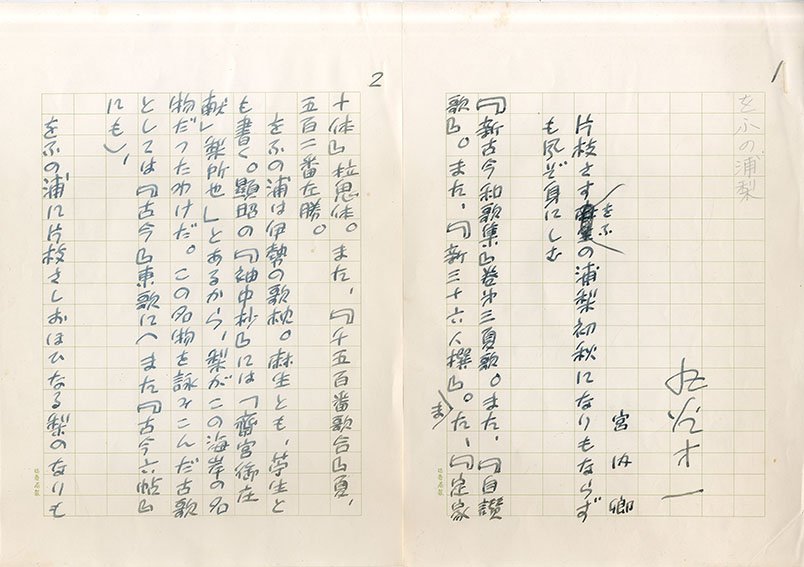 1
をふの浦梨
丸谷才一
宮内卿
片枝さす
をふ
の浦梨初秋になりもならず
も風ぞ身にしむ
『新古今和歌集』巻第三夏歌。また、『自讃
歌』。また、『新三十六人撰』。また、『定家
2
十体』拉鬼体。また、『千五百番歌合』夏、
五百二番左勝。
をふの浦は伊勢の歌枕。麻生とも、苧生と
も書く。顕昭の『袖中抄』には「斎宮御庄
献梨所也」とあるから、梨がこの海岸の名
物だつたわけだ。この名物を詠みこんだ古歌
としては『古今』東歌に(また『古今六帖』
にも)、
をふの浦に片枝さしおほひなる梨のなりも